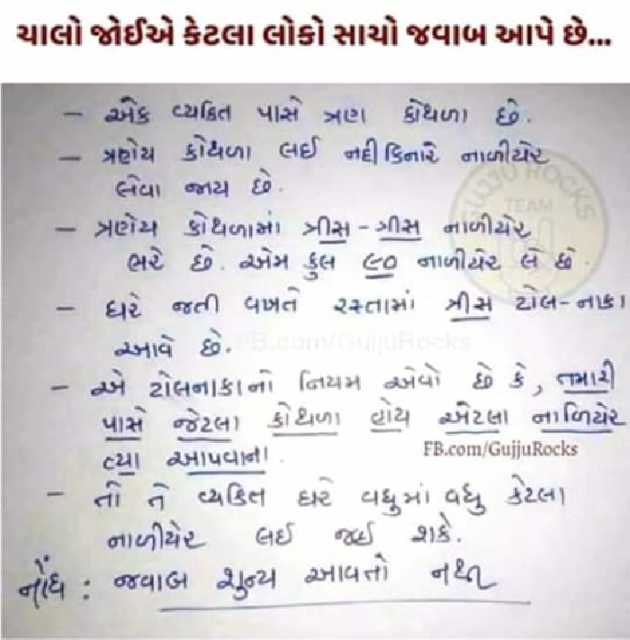 ચાલો જોઈએ કેટલા લોકો સાચો જવાબ આપે છે...
- એક વ્યકિત પાસે ત્રણ કોથળા છે.
- ત્રણેય કોથળા લઈ નદી કિનારે નાળીયેર
લેવા જાય છે.
- ત્રણેય કોથળામાં ત્રીસ-ત્રીસ નાળીયેર
ભરે છે. એમ કુલ ૯૦ નાળીયેર લે છે.
- ઘરે જતી વખતે રસ્તામાં ત્રીસ ટોલ-નાકા
આવે છે.
FB.com/GujjuRocks
- એ ટોલનાકાનો નિયમ એવો છે કે, તમારી
પાસે જેટલા કોથળા હોય એટલા નાળિયેર
ત્યા આપવાના.
FB.com/GujjuRocks
- તો તે વ્યકિત ઘરે વધુમાં વધુ કેટલા
નાળીયેર લઈ જઈ શકે.
નોંધ : જવાબ શુન્ય આવતો નથી
GUJJU ROCKS
TEAM